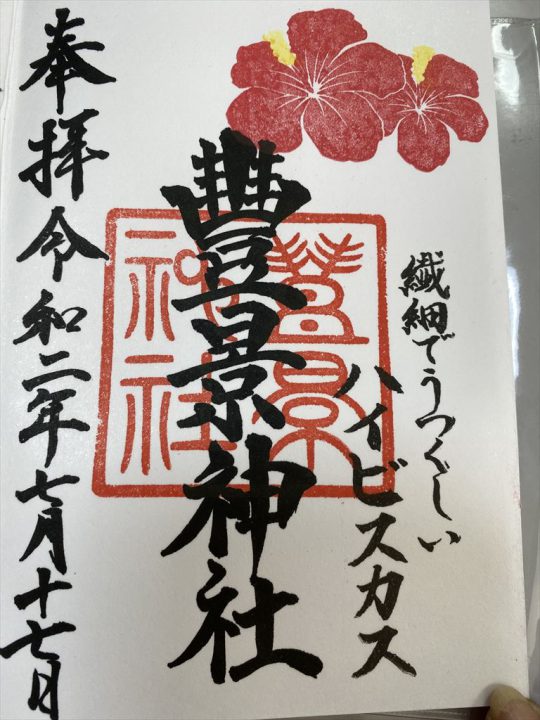 繊細でうつくしい
ハイビスカス
豊景神社
豊景神社
奉拝令和二年七月十七日